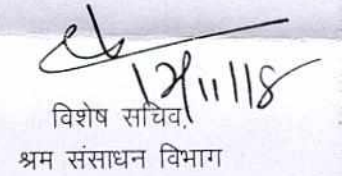 12/11/18
विशेष सचिव,
श्रम संसाधन विभाग